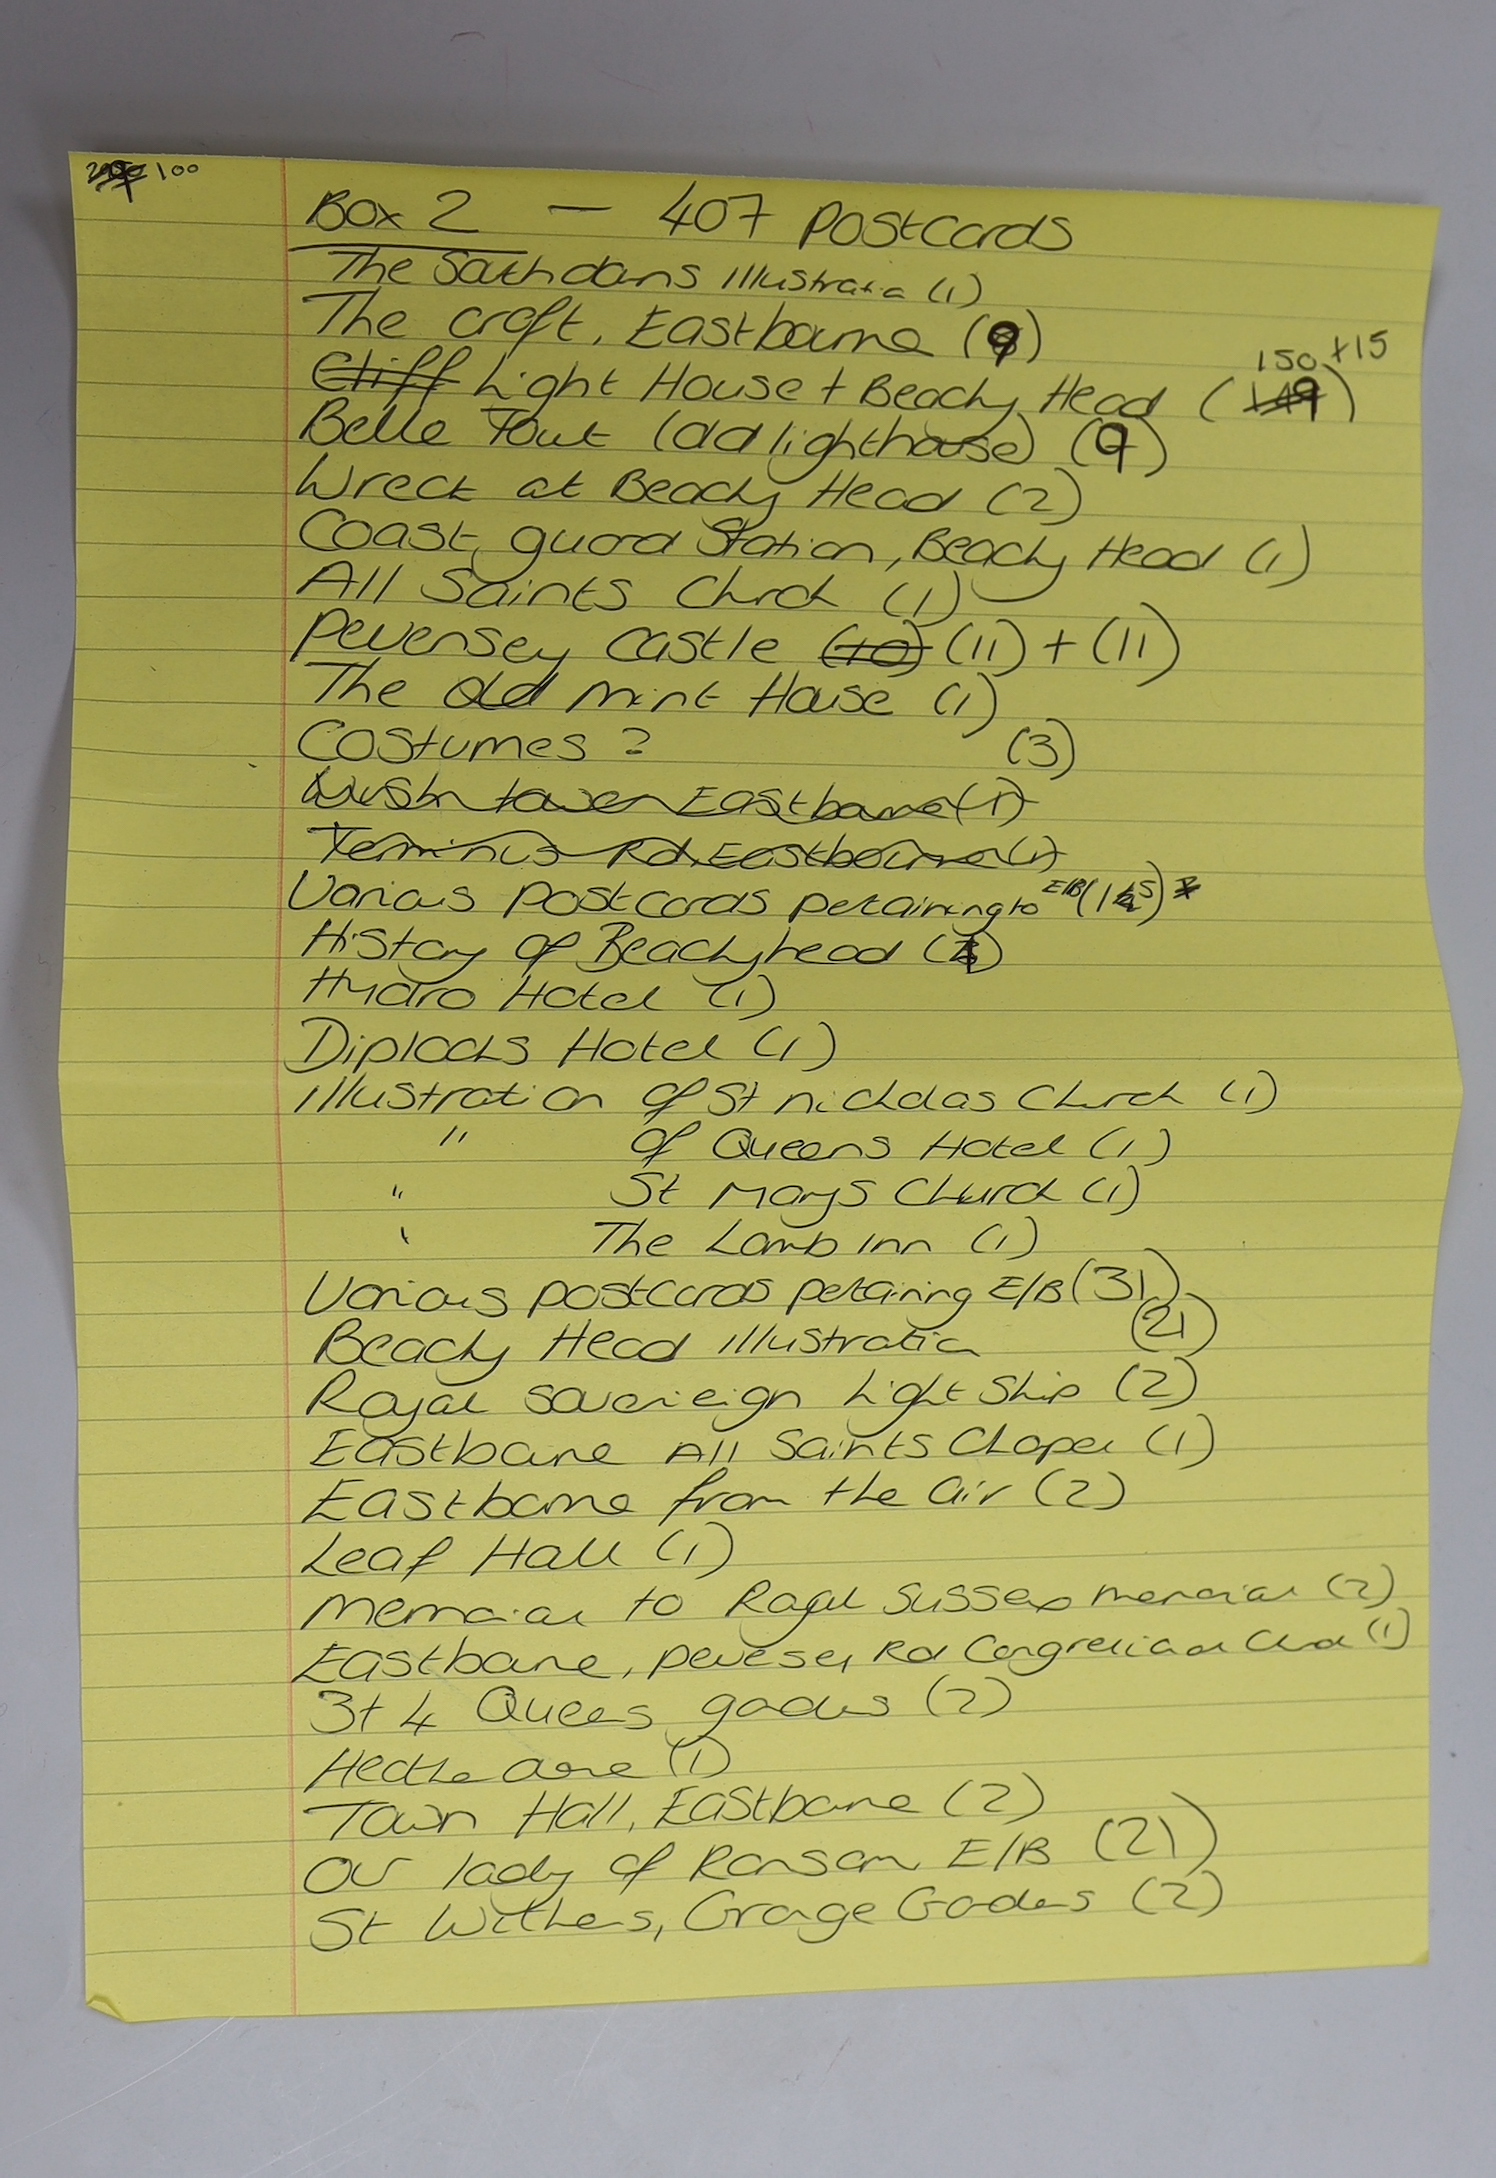 100
Box 2 — 407 Postcards
The Southdowns Illustration (1)
The Croft, Eastbourne (9)
Cliff Light House + Beachy Head (149) 150 +15
Belle Tout (old lighthouse) (9)
Wreck at Beachy Head (2)
Coast guard Station, Beachy Head (1)
All Saints Church (1)
Pevensey Castle (10) (11) + (11)
The Old Mint House (1)
Costumes ? (3)
Wish tower Eastbourne (1)
Terminus Rd, Eastbourne (1)
Various Postcards pertaining to E/B
History of Beachyhead
Hydro Hotel (1)
Diplocks Hotel (1)
Illustration of St nicholas Church (1)
" of Queens Hotel (1)
" St Marys Church (1)
' The Lamb Inn (1)
Various postcards pertaining E/B (31)
Beachy Head Illustration (21)
Royal Sovereign Light Ship (2)
Eastbourne All Saints Chapel (1)
Eastbourne from the Air (2)
Leaf Hall (1)
Memorial to Royal Sussex Memorial (2)
Eastbourne, Pevensey Rd Church (1)
3+4 Queens gardens (2)
(1)
Town Hall, Eastbourne (2)
Our lady of Ransom E/B (21)
St Grange Gardens (2)